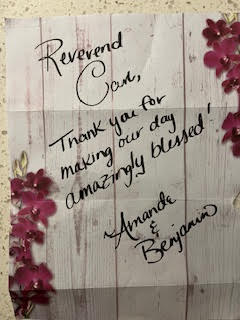 Reverend
Carl,
Thank you for
making our day
amazingly blessed!
~Amanda
&
Benjamin